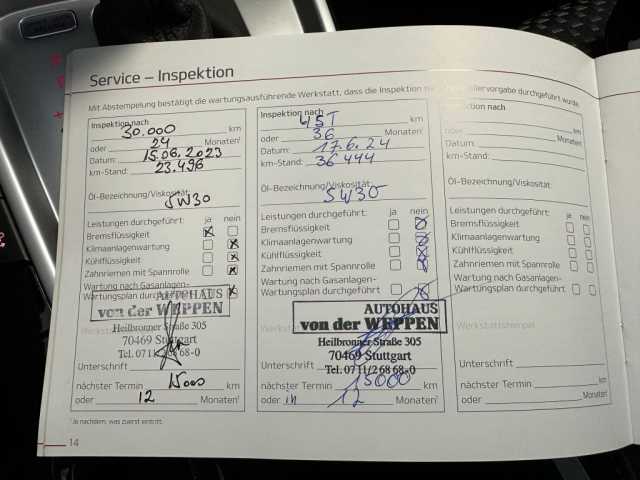 Service – Inspektion
Mit Abstempelung bestätigt die wartungsausführende Werkstatt, dass die Inspektion durchgeführt wurde.
Inspektion nach
30.000 km
oder 24 Monaten¹
Datum: 15.06.2023
km-Stand: 23.496
Öl-Bezeichnung/Viskosität:
5W30
Leistungen durchgeführt: ja nein
Bremsflüssigkeit
Klimaanlagenwartung
Kühlflüssigkeit
Zahnriemen mit Spannrolle
Wartung nach Gasanlagen-
Wartungsplan durchgeführt
AUTOHAUS
von der WEPPEN
Heilbronner Straße 305
70469 Stuttgart
Tel. 0711/2 68 68-0
Unterschrift
nächster Termin 15000 km
oder 12 Monaten¹
Inspektion nach
45T
oder 36 Monaten¹
Datum: 17.6.24
km-Stand: 36444
Öl-Bezeichnung/Viskosität:
5W30
Leistungen durchgeführt: ja nein
Bremsflüssigkeit
Klimaanlagenwartung
Kühlflüssigkeit
Zahnriemen mit Spannrolle
Wartung nach Gasanlagen-
Wartungsplan durchgeführt
AUTOHAUS
von der WEPPEN
Heilbronner Straße 305
70469 Stuttgart
Tel. 0711/2 68 68-0
Unterschrift
nächster Termin 15000 km
oder in 12 Monaten¹
Inspektion nach
km
oder Monaten¹
Datum:
km-Stand:
Öl-Bezeichnung/Viskosität:
Leistungen durchgeführt: ja nein
Bremsflüssigkeit
Klimaanlagenwartung
Kühlflüssigkeit
Zahnriemen mit Spannrolle
Wartung nach Gasanlagen-
Wartungsplan durchgeführt
Werkstattstempel
Unterschrift
nächster Termin km
oder Monaten¹
¹ Je nachdem, was zuerst eintritt.
14